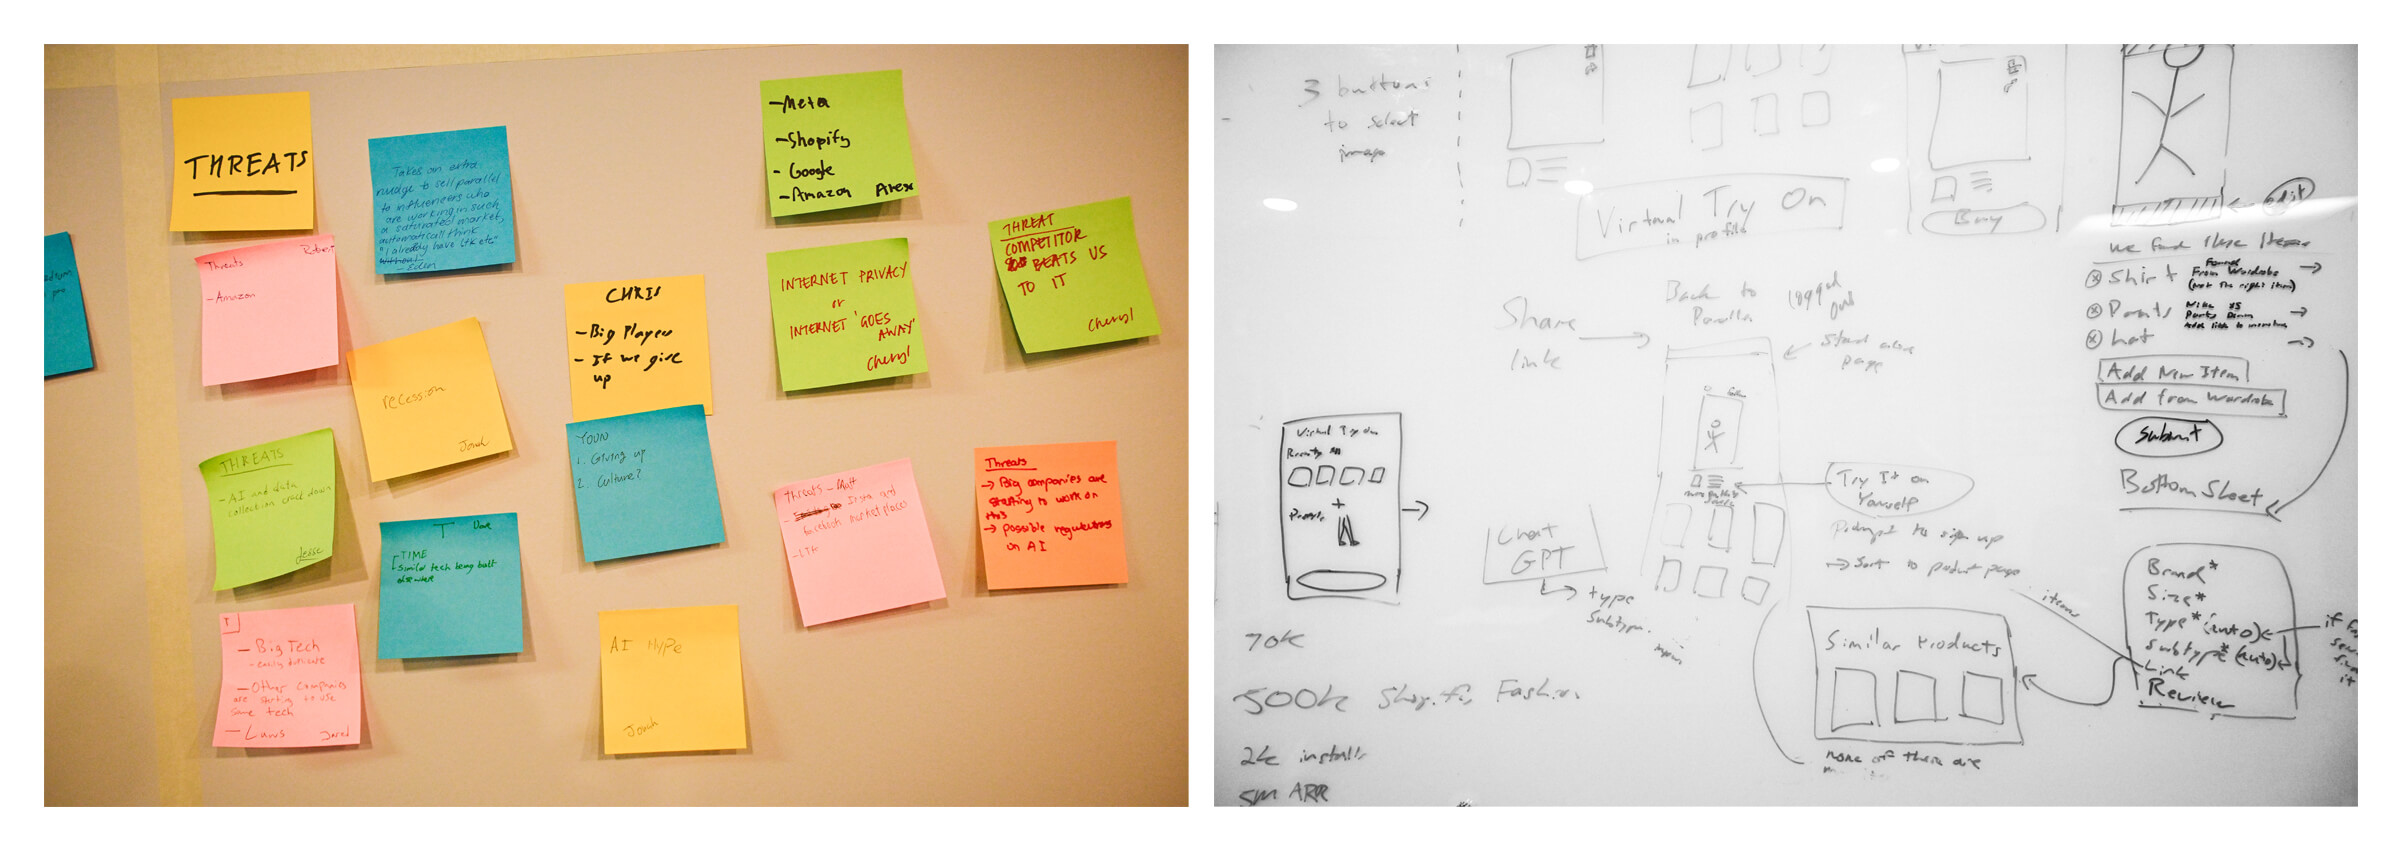 THREATS
Takes an extra
nudge to sell parallel
to influencers who
are working in such
a saturated market,
automatically think
"I already have ltk etc"
- Eden
Threats Robert
- Amazon
recession
Jonah
THREATS
- AI and data
collection crack down
Jesse
T Dave
- TIME
- Similar tech being built
elsewhere
T
- Big Tech
- easily duplicate
- Other companies
are starting to use
same tech
- Laws Jared
CHRIS
- Big Players
- If we give
up
YOUN
1. Giving up
2. Culture?
AI HYPE
Jonah
- Meta
- Shopify
- Google
- Amazon Alex
INTERNET PRIVACY
or
INTERNET 'GOES
AWAY'
Cheryl
THREAT
COMPETITOR
BEATS US
TO IT
Cheryl
Threats - Matt
- Insta and
facebook marketplaces
- LTK
Threats
→ Big companies are
starting to work on
this
→ possible regulations
on AI
3 buttons
to select
image
Virtual Try On
in profile
Buy
edit
We found these Items
Shirt Found From Wardrobe
(not the right item)
Pants
hat
Add New Item
Add from Wardrobe
Submit
Bottom Sheet
Share
link
Back to
Parallel
logged
out
Stand alone
page
Virtual Try On
Chat
GPT
type
subtype
Try It on
Yourself
Prompt to sign up
→ Sort to product page
items
Similar Products
none of these are
Brand*
Size*
Type* (auto)
Subtype* (auto)
Link
Review
if
it
70k
500k Shopify Fashion
2k installs
5M ARR